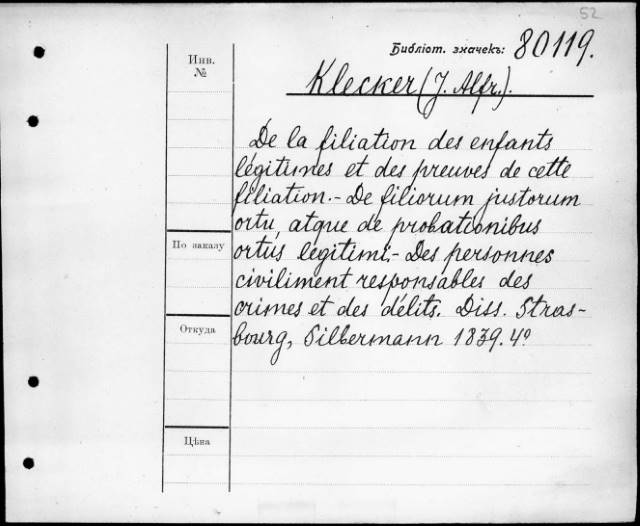 52
Библіот. значекъ: 80119.
Инв.
№
Klecker (J. Alfr.).
De la filiation des enfants
légitimes et des preuves de cette
filiation.- De filiorum justorum
ortu, atque de probationibus
ortus legitimi.- Des personnes
По заказу
civiliment responsables des
crimes et des délits. Diss. Stras-
Откуда
bourg, Silbermann 1839. 4º
Цѣна